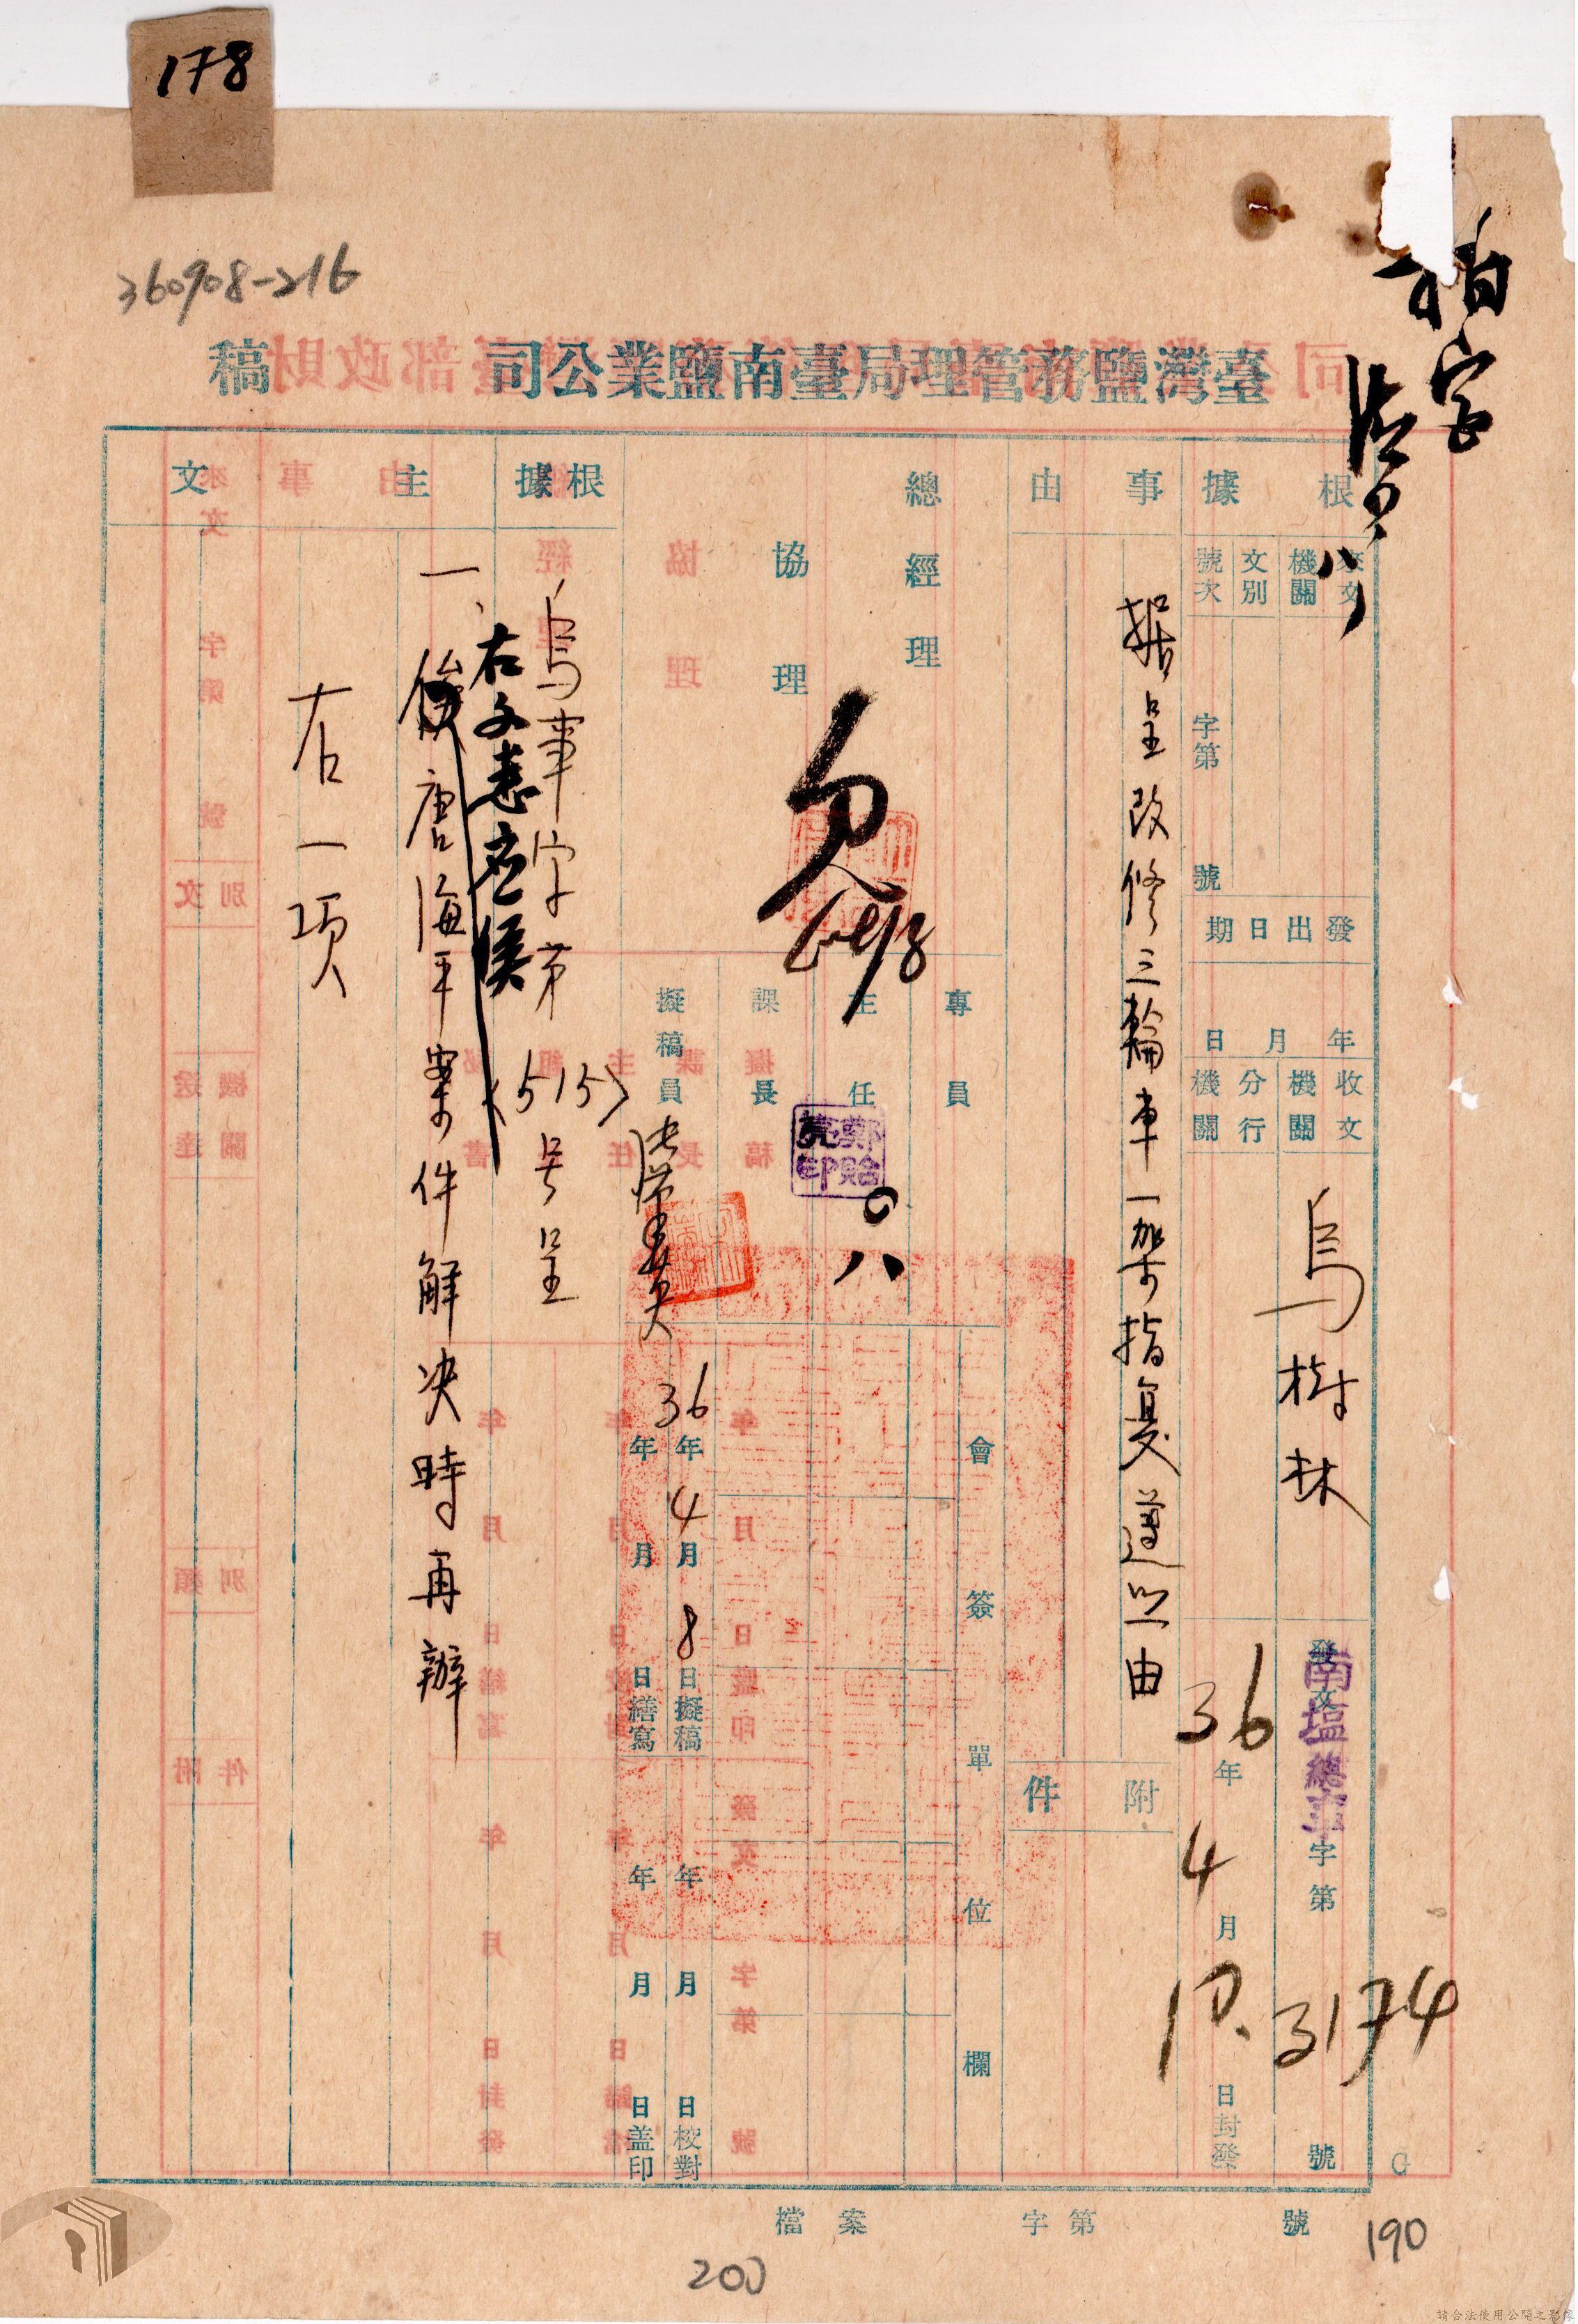 178
360908-216
臺灣鹽務管理局臺南鹽業公司 稿
根據
來文機關
文別
號次
字第 號
發出日期
年 月 日
收文機關
烏樹林
分行機關
發文 南塩總車 字第 3174 號
36年4月10日封發
事由
据呈改修三輪車一架指复遵照由
附件
總經理
協理
4/8
專員
主任
鄭貽亮印
八
課長
擬稿員
會簽單位欄
36年4月8日擬稿
年 月 日繕寫
年 月 日校對
年 月 日盖印
根據
烏事字第(515)号呈
主文
一、
右文悉应俟
俟唐海平案件解决時再辦
右一項
檔案 字第 號
190
200
請合法使用公開之影像